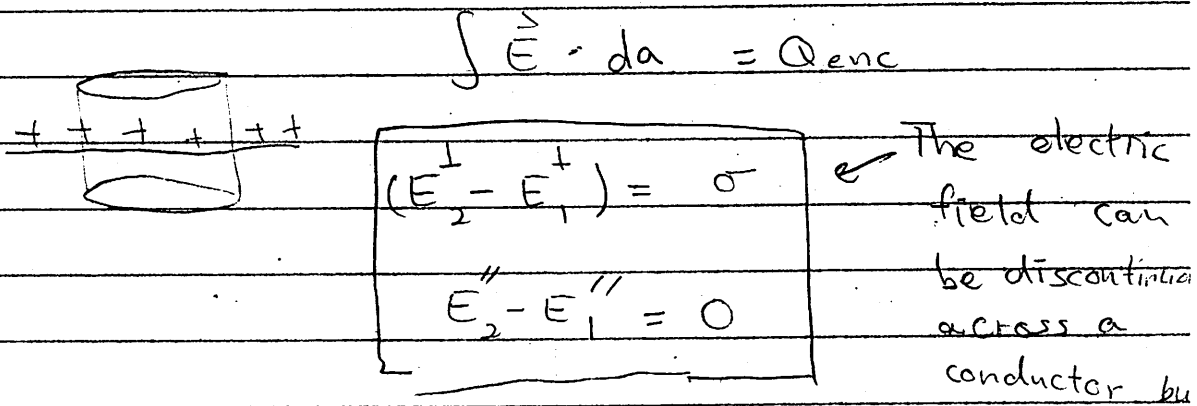 ∫ E⃗ · da = Qenc
+ + + + + +
(E₂^⊥ - E₁^⊥) = σ
E₂^∥ - E₁^∥ = 0
The electric
field can
be
across a
conductor